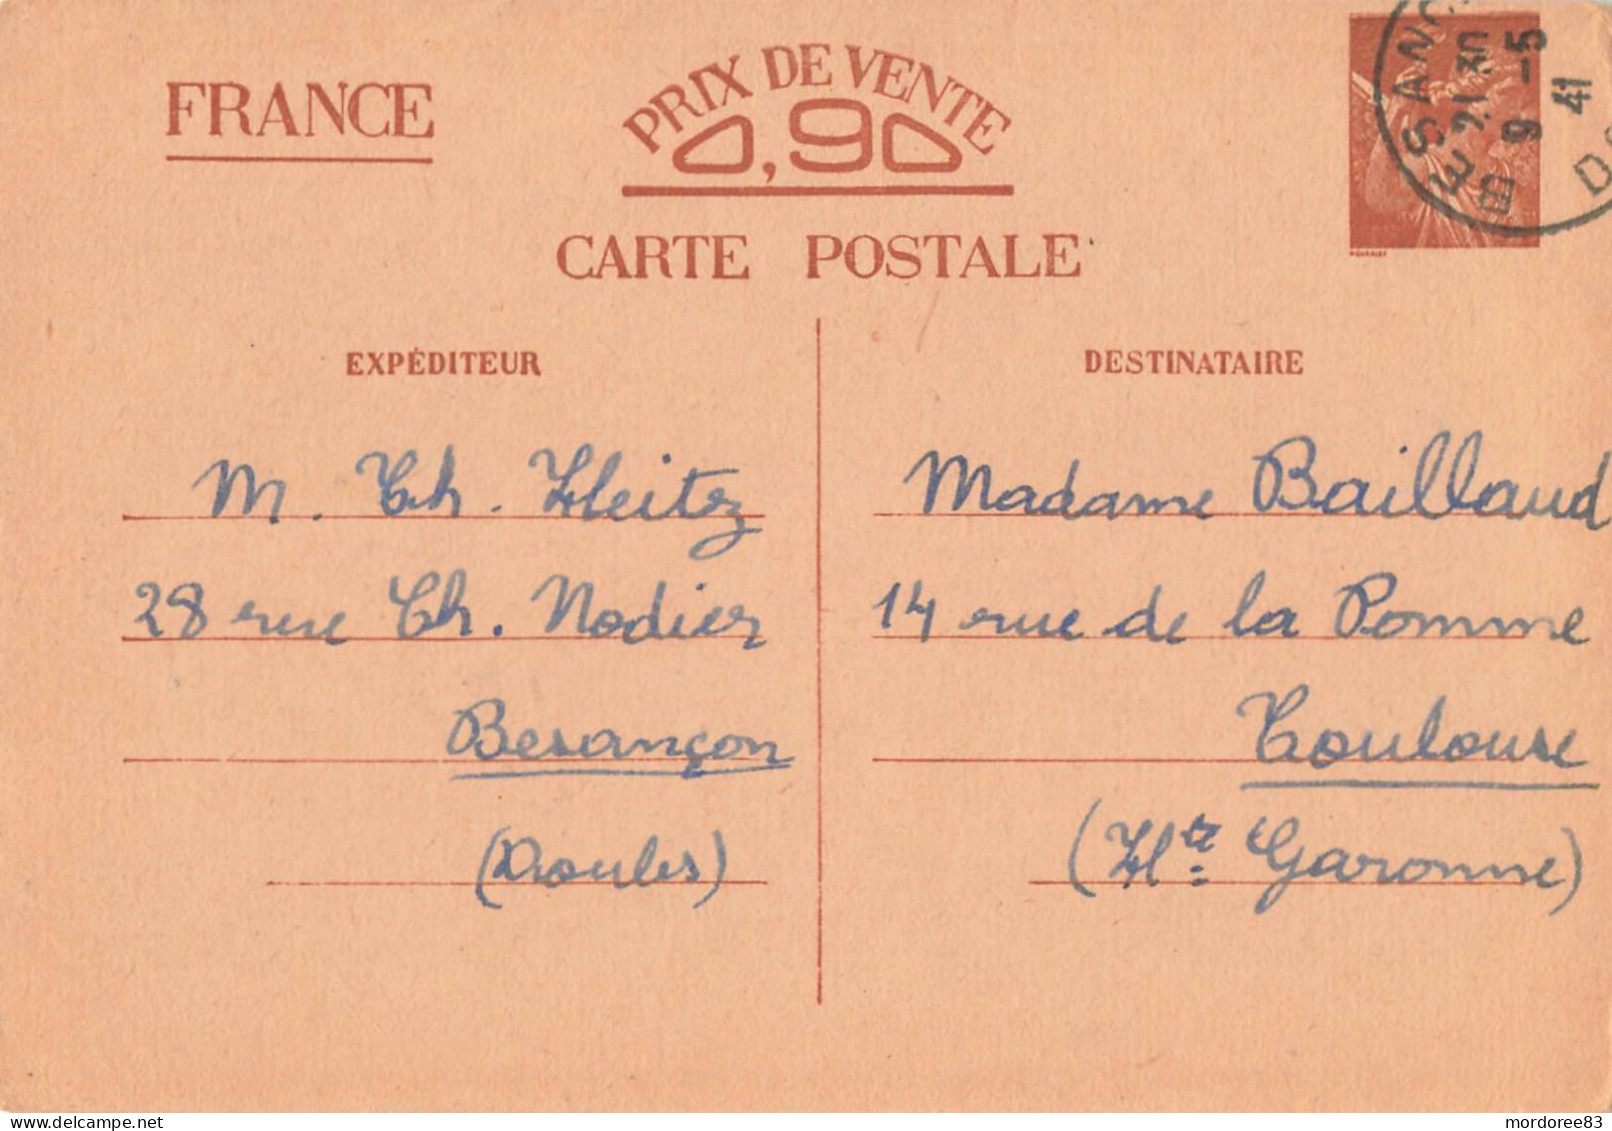 FRANCE
PRIX DE VENTE
0,90
CARTE POSTALE
BESANÇ
21 30
9 -5
41
EXPÉDITEUR
M. Ch. Heitz
28 rue Ch. Nodier
Besançon
(Doubs)
DESTINATAIRE
Madame Baillaud
14 rue de la Pomme
Toulouse
(Hte Garonne)
www.delcampe.net
mordoree83